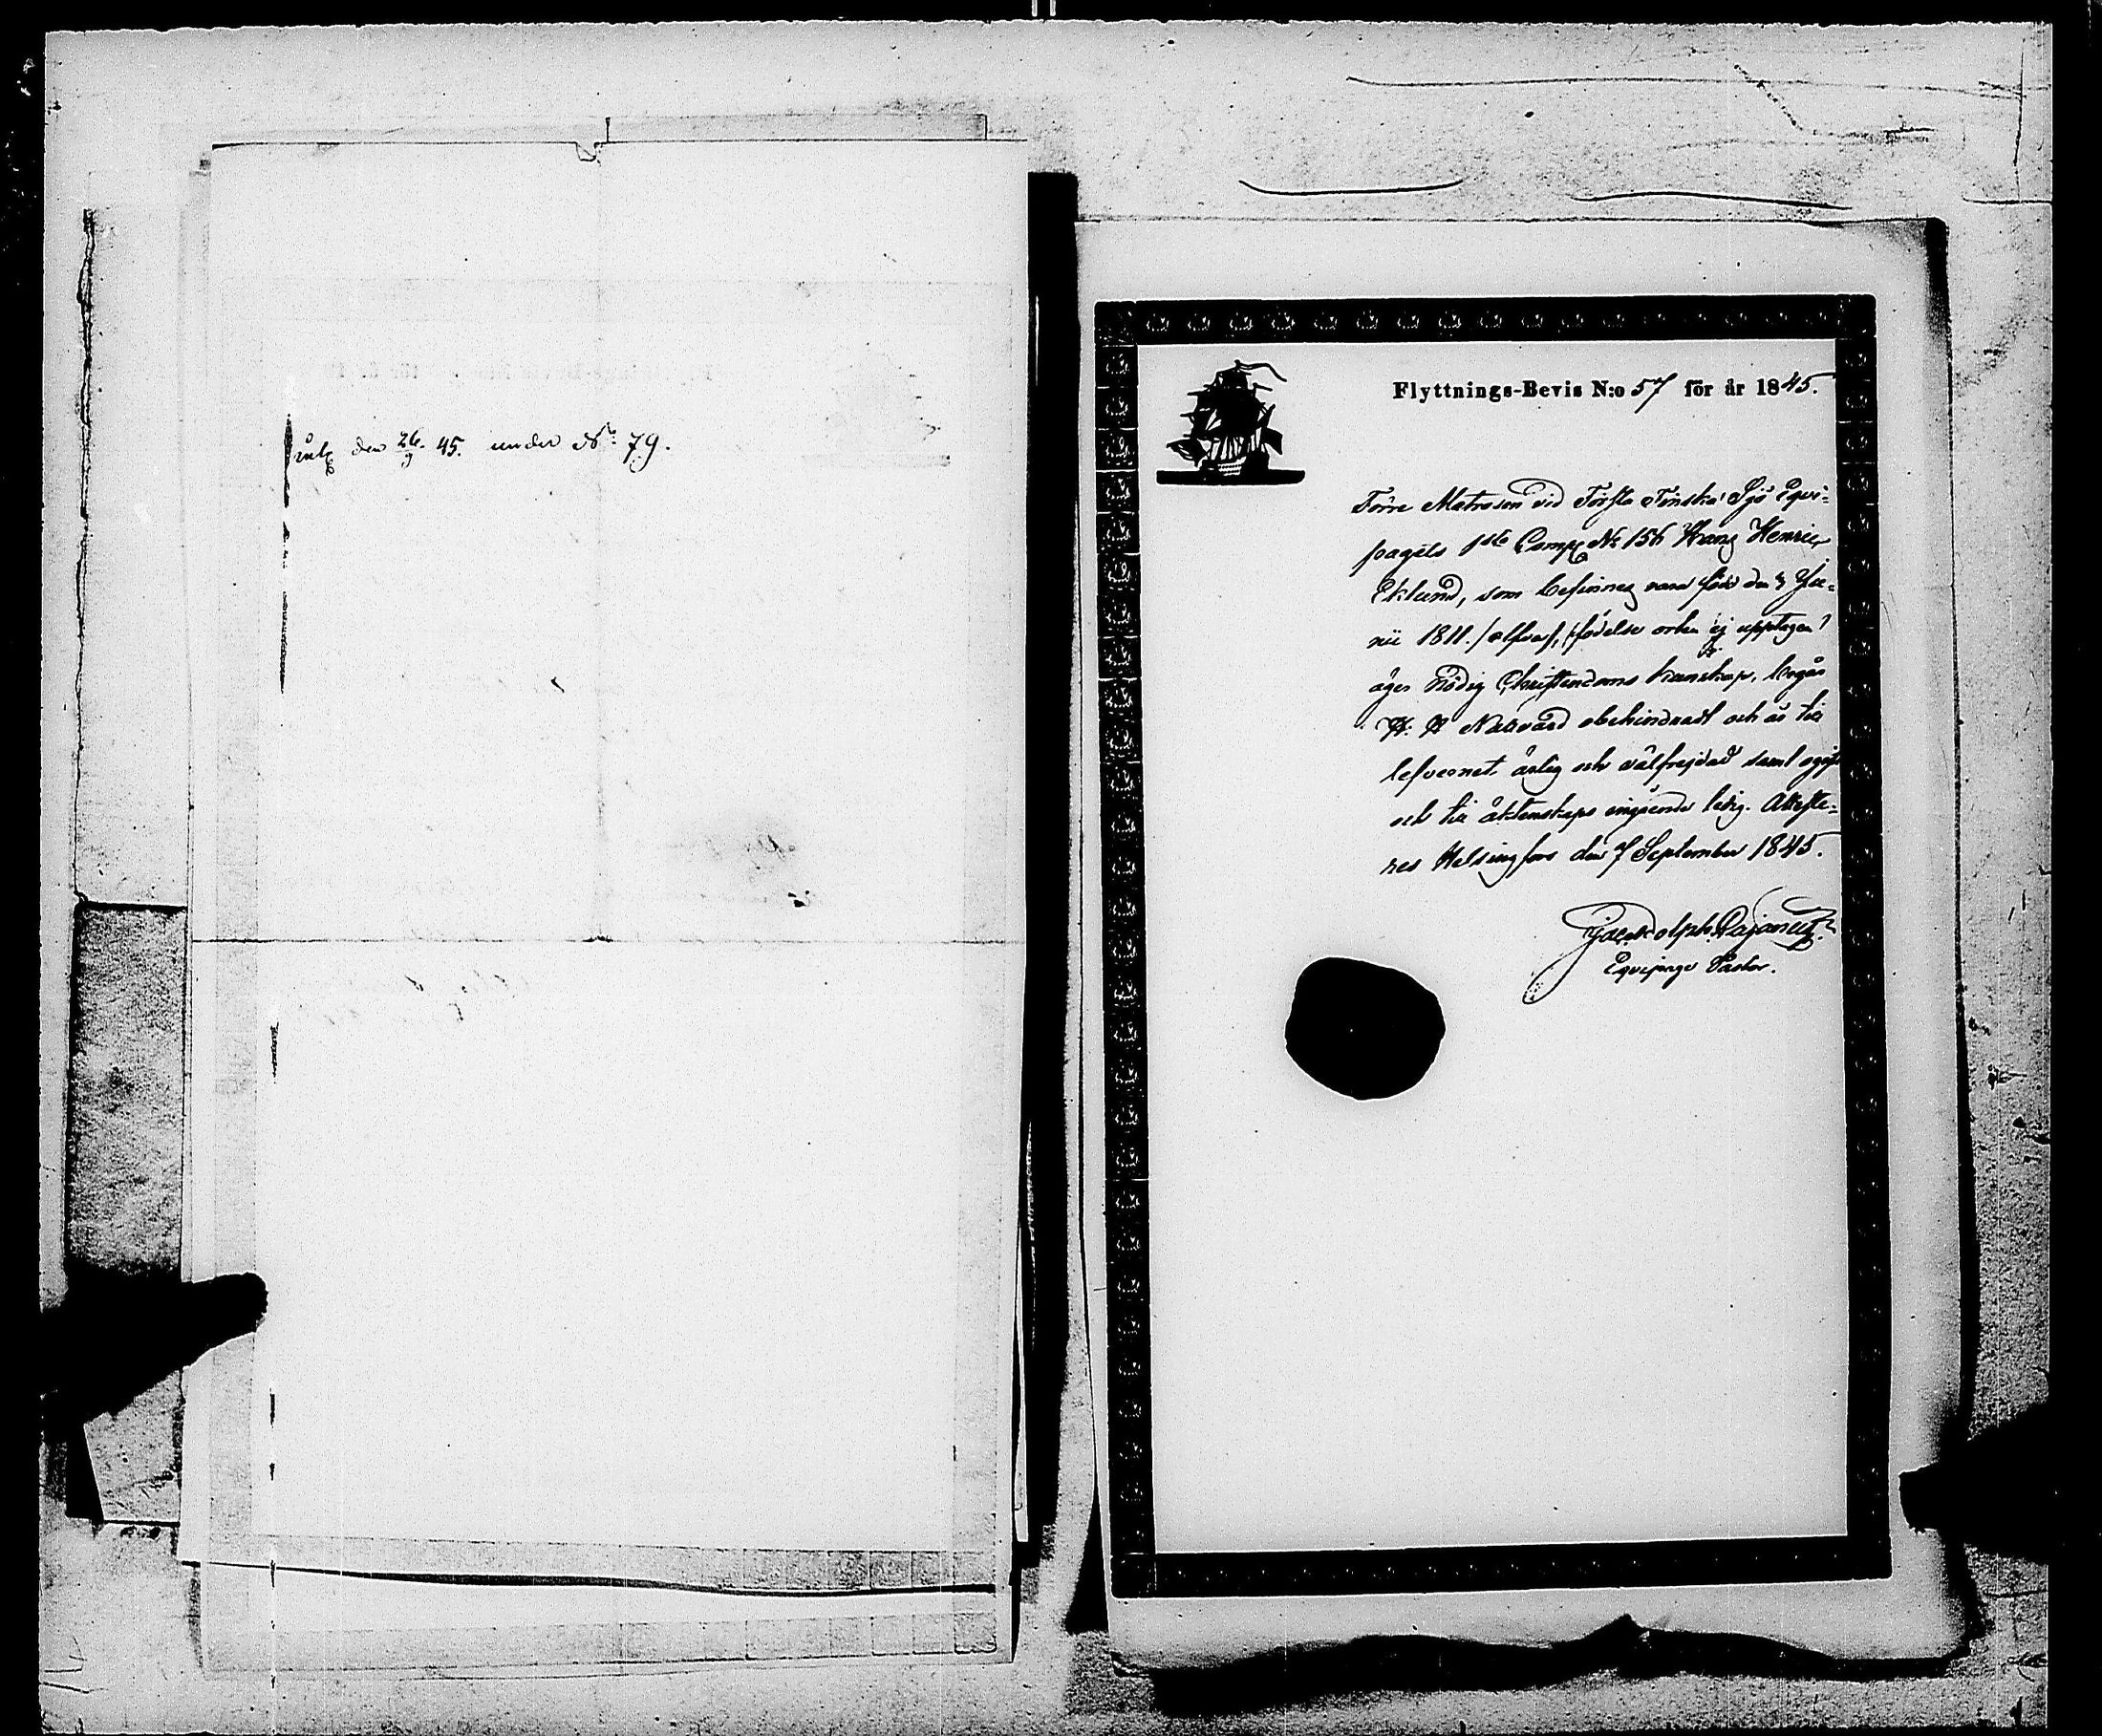 den 26/9 45. under No 79.
Flyttnings-Bevis N:o 57 för år 1845.
Förre Matrosen vid Första Finska Sjö Equi-
pagets 1sta Comp No 156 Hans Henric
Eklund, som befinnes vara född den Ju-
nii 1811. /elfva/, födelse orten ej upptagen
äger nödig Christendoms kunskap, begår
H. H. Nattvard obehindradt och är till
lefvernet ärlig och välfrejdad samt ogift
och till äktenskaps ingående ledig. Atteste-
res Helsingfors den 7 September 1845.
Equipage Pastor.